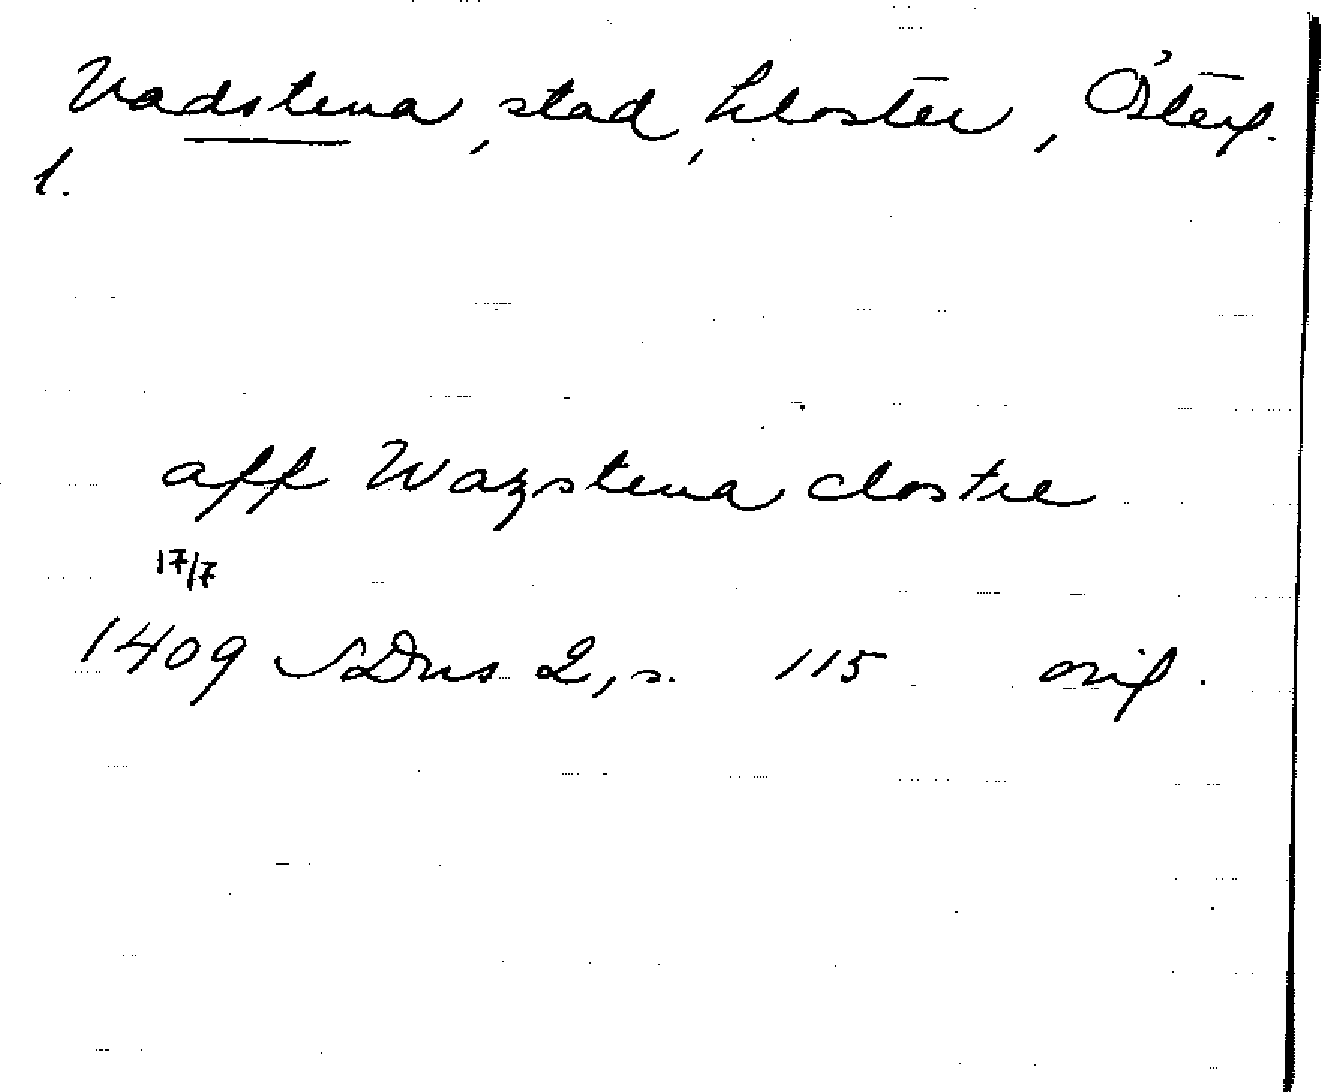 Vadstena, stad, kloster, Österg.
l.
aff Wazstena clostre
17/7
1409 SDns 2, s. 115 orig.